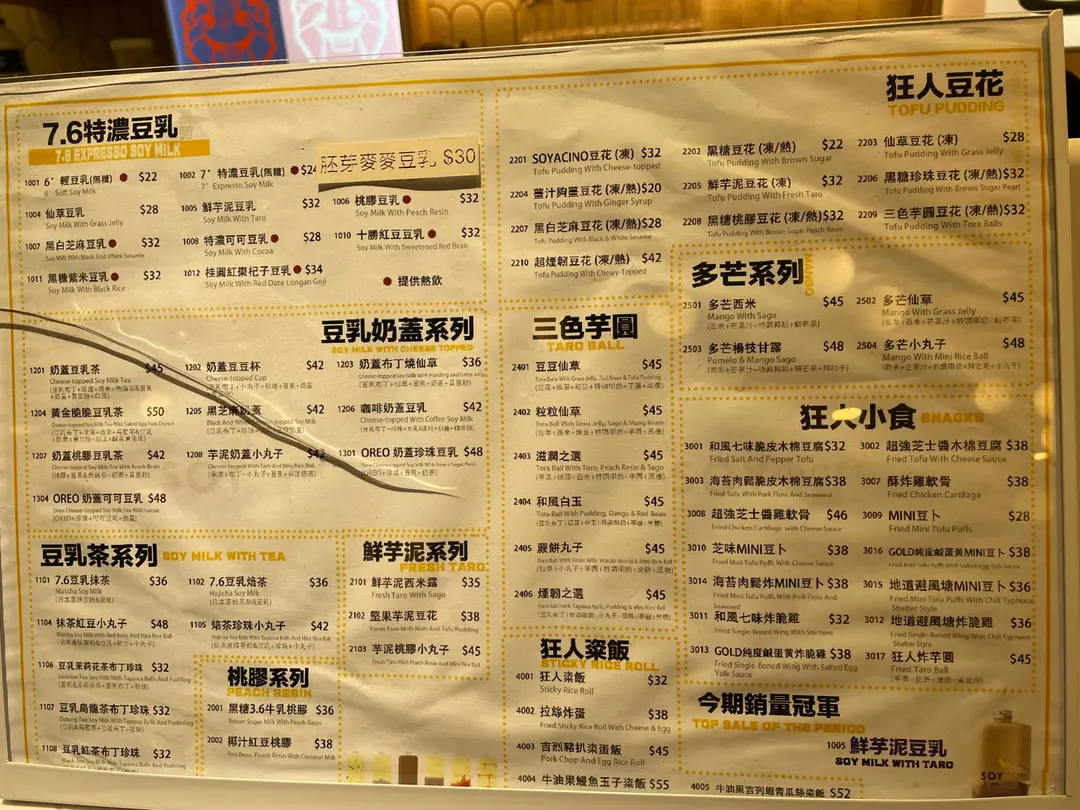 7.6特濃豆乳
7.6 EXPRESSO SOY MILK
1001 6° 輕豆乳(無糖) $22
6° Soft Soy Milk
1002 7° 特濃豆乳(無糖) $24
7° Expresso Soy Milk
胚芽麥麥豆乳 $30
1004 仙草豆乳 $28
Soy Milk With Grass Jelly
1005 鮮芋泥豆乳 $32
Soy Milk With Taro
1006 桃膠豆乳 $32
Soy Milk With Peach Resin
1007 黑白芝麻豆乳 $32
Soy Milk With Black And White Sesame
1008 特濃可可豆乳 $28
Soy Milk With Cocoa
1010 十勝紅豆豆乳 $32
Soy Milk With Sweetened Red Bean
1011 黑糖紫米豆乳 $32
Soy Milk With Black Rice
1012 桂圓紅棗杞子豆乳 $34
Soy Milk With Red Date Longan Goji
提供熱飲
豆乳奶蓋系列
SOY MILK WITH CHEESE TOPPED
1201 奶蓋豆乳茶 $45
Cheese-topped Soy Milk Tea
1202 奶蓋豆豆杯 $42
Cheese-topped Cup
1203 奶蓋布丁燒仙草 $36
1204 黃金脆脆豆乳茶 $50
1205 黑芝麻奶蓋 $42
1206 咖啡奶蓋豆乳 $42
Cheese-topped With Coffee Soy Milk
1207 奶蓋桃膠豆乳茶 $42
1208 芋泥奶蓋小丸子 $42
1301 OREO 奶蓋珍珠豆乳 $48
1304 OREO 奶蓋可可豆乳 $48
豆乳茶系列 SOY MILK WITH TEA
1101 7.6豆乳抹茶 $36
Matcha Soy Milk
1102 7.6豆乳焙茶 $36
Hojicha Soy Milk
1104 抹茶紅豆小丸子 $48
1105 焙茶珍珠小丸子 $42
1106 豆乳茉莉花茶布丁珍珠 $32
1107 豆乳烏龍茶布丁珍珠 $32
1108 豆乳紅茶布丁珍珠 $32
鮮芋泥系列
FRESH TARO
2101 鮮芋泥西米露 $35
Fresh Taro With Sago
2102 堅果芋泥豆花 $38
Fresh Taro With Nuts And Tofu Pudding
2103 芋泥桃膠小丸子 $45
桃膠系列
PEACH RESIN
2001 黑糖3.6牛乳桃膠 $36
Brown Sugar Milk With Peach Resin
2002 椰汁紅豆桃膠 $38
狂人豆花
TOFU PUDDING
2201 SOYACINO豆花 (凍) $32
Tofu Pudding With Cheese-topped
2202 黑糖豆花 (凍/熱) $22
Tofu Pudding With Brown Sugar
2203 仙草豆花 (凍) $28
Tofu Pudding With Grass Jelly
2204 薑汁夠薑豆花 (凍/熱)$20
Tofu Pudding With Ginger Syrup
2205 鮮芋泥豆花 (凍) $32
Tofu Pudding With Fresh Taro
2206 黑糖珍珠豆花 (凍/熱)$32
Tofu Pudding With Brown Sugar Pearl
2207 黑白芝麻豆花 (凍/熱)$28
Tofu Pudding With Black & White Sesame
2208 黑糖桃膠豆花 (凍/熱)$32
Tofu Pudding With Brown Sugar Peach Resin
2209 三色芋圓豆花 (凍/熱)$32
Tofu Pudding With Tora Balls
2210 超煙韌豆花 (凍/熱) $42
Tofu Pudding With Chewy-Topped
三色芋圓
TARO BALL
2401 豆豆仙草 $45
2402 粒粒仙草 $45
Tora Ball With Grass Jelly, Sago & Mung Bean
2403 滋潤之選 $45
Tora Ball With Taro, Peach Resin & Sago
2404 和風白玉 $45
Tora Ball With Pudding, Dango & Red Bean
2405 蕨餅丸子 $45
2406 煙韌之選 $45
狂人粢飯
STICKY RICE ROLL
4001 狂人粢飯 $32
Sticky Rice Roll
4002 拉絲炸蛋 $38
Fried Sticky Rice Roll With Cheese & Egg
4003 吉烈豬扒粢蛋飯 $45
Pork Chop And Egg Rice Roll
4004 牛油果鰻魚玉子粢飯 $55
4005 牛油果吉列蝦青瓜絲粢飯 $52
多芒系列
MANGO
2501 多芒西米 $45
Mango With Sago
2502 多芒仙草 $45
Mango With Grass Jelly
2503 多芒楊枝甘露 $48
Pomelo & Mango Sago
2504 多芒小丸子 $48
Mango With Mini Rice Ball
狂人小食 SNACKS
3001 和風七味脆皮木棉豆腐$32
Fried Salt And Pepper Tofu
3002 超強芝士醬木棉豆腐 $38
Fried Tofu With Cheese Sauce
3003 海苔肉鬆脆皮木棉豆腐$38
Fried Tofu With Pork Floss And Seaweed
3007 酥炸雞軟骨 $38
Fried Chicken Cartilage
3008 超強芝士醬雞軟骨 $46
Fried Chicken Cartilage with Cheese Sauce
3009 MINI豆卜 $28
Fried Mini Tofu Puffs
3010 芝味MINI豆卜 $38
Fried Mini Tofu Puffs With Cheese Sauce
3016 GOLD純度鹹蛋黃MINI豆卜 $38
Fried Mini Tofu Puffs With Salted Egg Yolk Sauce
3014 海苔肉鬆炸MINI豆卜 $38
Fried Mini Tofu Puffs With Pork Floss And
Seaweed
3015 地道避風塘MINI豆卜 $36
Fried Mini Tofu Puffs With Chili Typhoon
Shelter Style
3011 和風七味炸脆雞 $32
Fried Single-Boned Wing With Shichimi
3012 地道避風塘炸脆雞 $36
Fried Single-Boned Wing With Chili Typhoon
Shelter Style
3013 GOLD純度鹹蛋黃炸脆雞 $38
Fried Single-Boned Wing With Salted Egg
Yolk Sauce
3017 狂人炸芋圓 $45
Fried Taro Ball
今期銷量冠軍
TOP SALE OF THE PERIOD
1005 鮮芋泥豆乳
SOY MILK WITH TARO
SOY